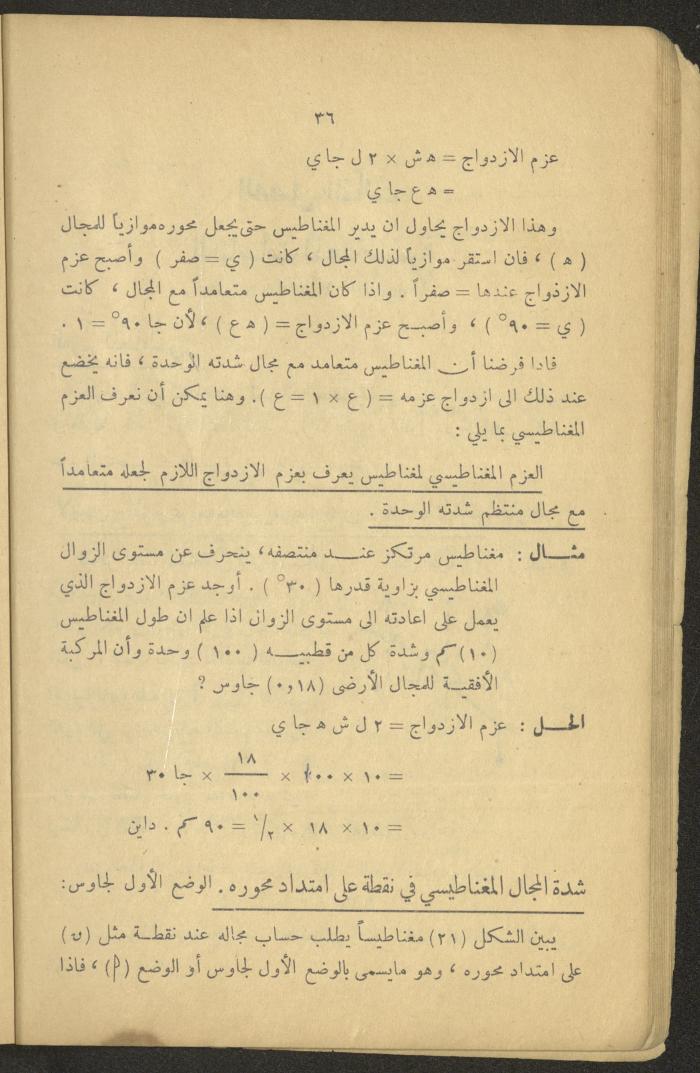 ٣٦
عزم الازدواج = ه ش × ٢ ل جاي
= ه ع جاي
وهذا الازدواج يحاول ان يدير المغناطيس حتى يجعل محوره موازياً للمجال
( ه ) ، فان استقر موازياً لذلك المجال ، كانت ( ي = صفر ) وأصبح عزم
الازذواج عندها = صفراً . واذا كان المغناطيس متعامداً مع المجال ، كانت
( ي = ٩٠° ) ، وأصبح عزم الازدواج = ( ه ع ) ، لأن جا ٩٠° = ١ .
فاذا فرضنا أن المغناطيس متعامد مع مجال شدته الوحدة ، فانه يخضع
عند ذلك الى ازدواج عزمه = ( ع × ١ = ع ) . وهنا يمكن أن نعرف العزم
المغناطيسي بما يلي :
العزم المغناطيسي لمغناطيس يعرف بعزم الازدواج اللازم لجعله متعامداً
مع مجال منتظم شدته الوحدة .
مثال : مغناطيس مرتكز عند منتصفه، ينحرف عن مستوى الزوال
المغناطيسي بزاوية قدرها ( ٣٠° ) . أوجد عزم الازدواج الذي
يعمل على اعادته الى مستوى الزوان اذا علم ان طول المغناطيس
(١٠) سم وشدة كل من قطبيه ( ١٠٠ ) وحدة وأن المركبة
الأفقية للمجال الأرضى (٠,١٨) جاوس ؟
الحل : عزم الازدواج = ٢ ل ش ه جا ي
= ١٠ × ١٠٠ × ١٨/١٠٠ × جا ٣٠
= ١٠ × ١٨ × ١/٢ = ٩٠ سم . داين
شدة المجال المغناطيسي في نقطة على امتداد محوره . الوضع الأول لجاوس:
يبين الشكل (٢١) مغناطيساً يطلب حساب مجاله عند نقطة مثل (ن)
على امتداد محوره ، وهو مايسمى بالوضع الأول لجاوس أو الوضع (م) ، فاذا